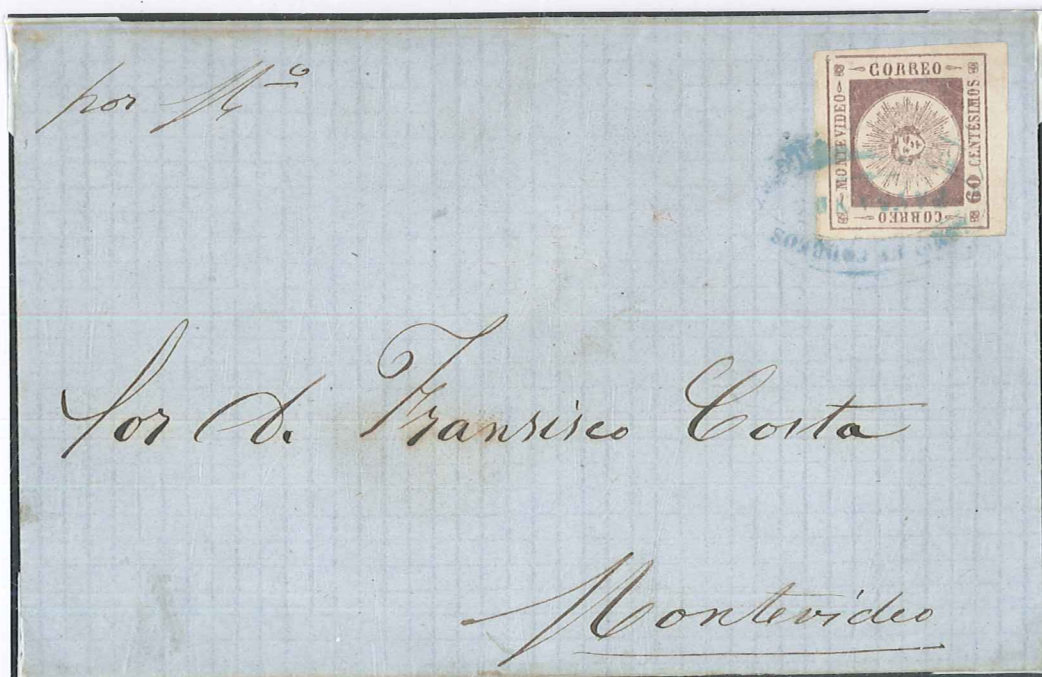 por M⁰
CORREO
MONTEVIDEO
60 CENTÉSIMOS
CORREO
Sor D. Fransisco Costa
Montevideo